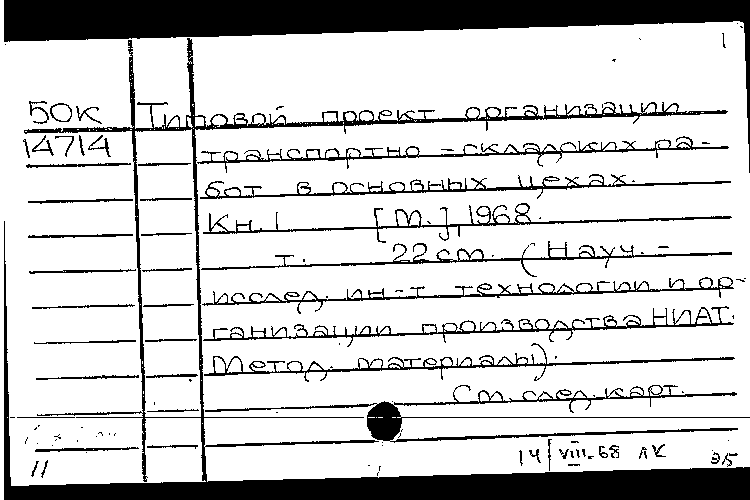 1
50К Типовой проект организации
14714 транспортно-складских ра-
бот в основных цехах.
Кн. 1 [М.], 1968.
т. 22 см. (Науч.-
исслед. ин-т технологии и ор-
ганизации производства НИАТ.
Метод. материалы).
См. след. карт.
11
14 VIII-68 ЛК 35